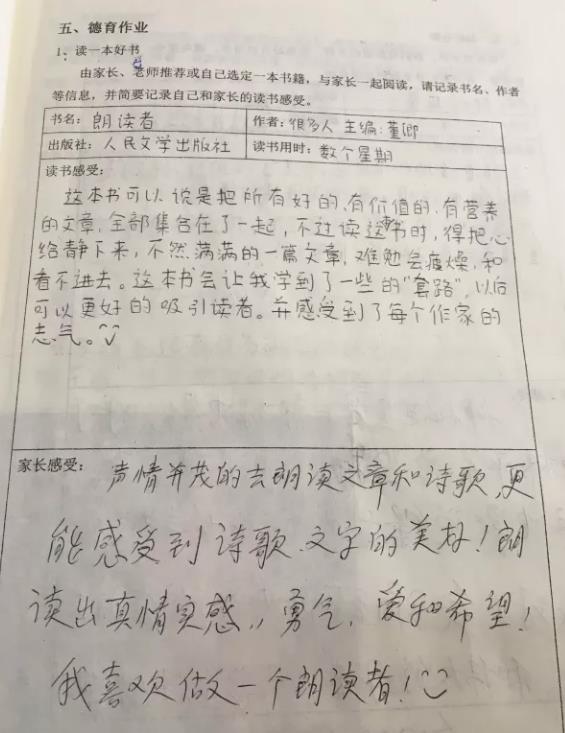 五、德育作业
1、读一本好书
由家长、老师推荐或自己选定一本书籍，与家长一起阅读，请记录书名、作者
等信息，并简要记录自己和家长的读书感受。
书名：朗读者 作者：很多人 主编：董卿
出版社：人民文学出版社 读书用时：数个星期
读书感受：
这本书可以说是把所有好的、有价值的、有营养
的文章，全部集合在了一起，不过读这本书时，得把心
给静下来，不然满满的一篇文章，难勉会疲燥，和
看不进去。这本书会让我学到了一些的“套路”，以后
可以更好的吸引读者。并感受到了每个作家的
志气。
家长感受：声情并茂的去朗读文章和诗歌、更
能感受到诗歌、文字的美好！朗
读出真情实感，勇气，爱和希望！
我喜欢做一个朗读者！